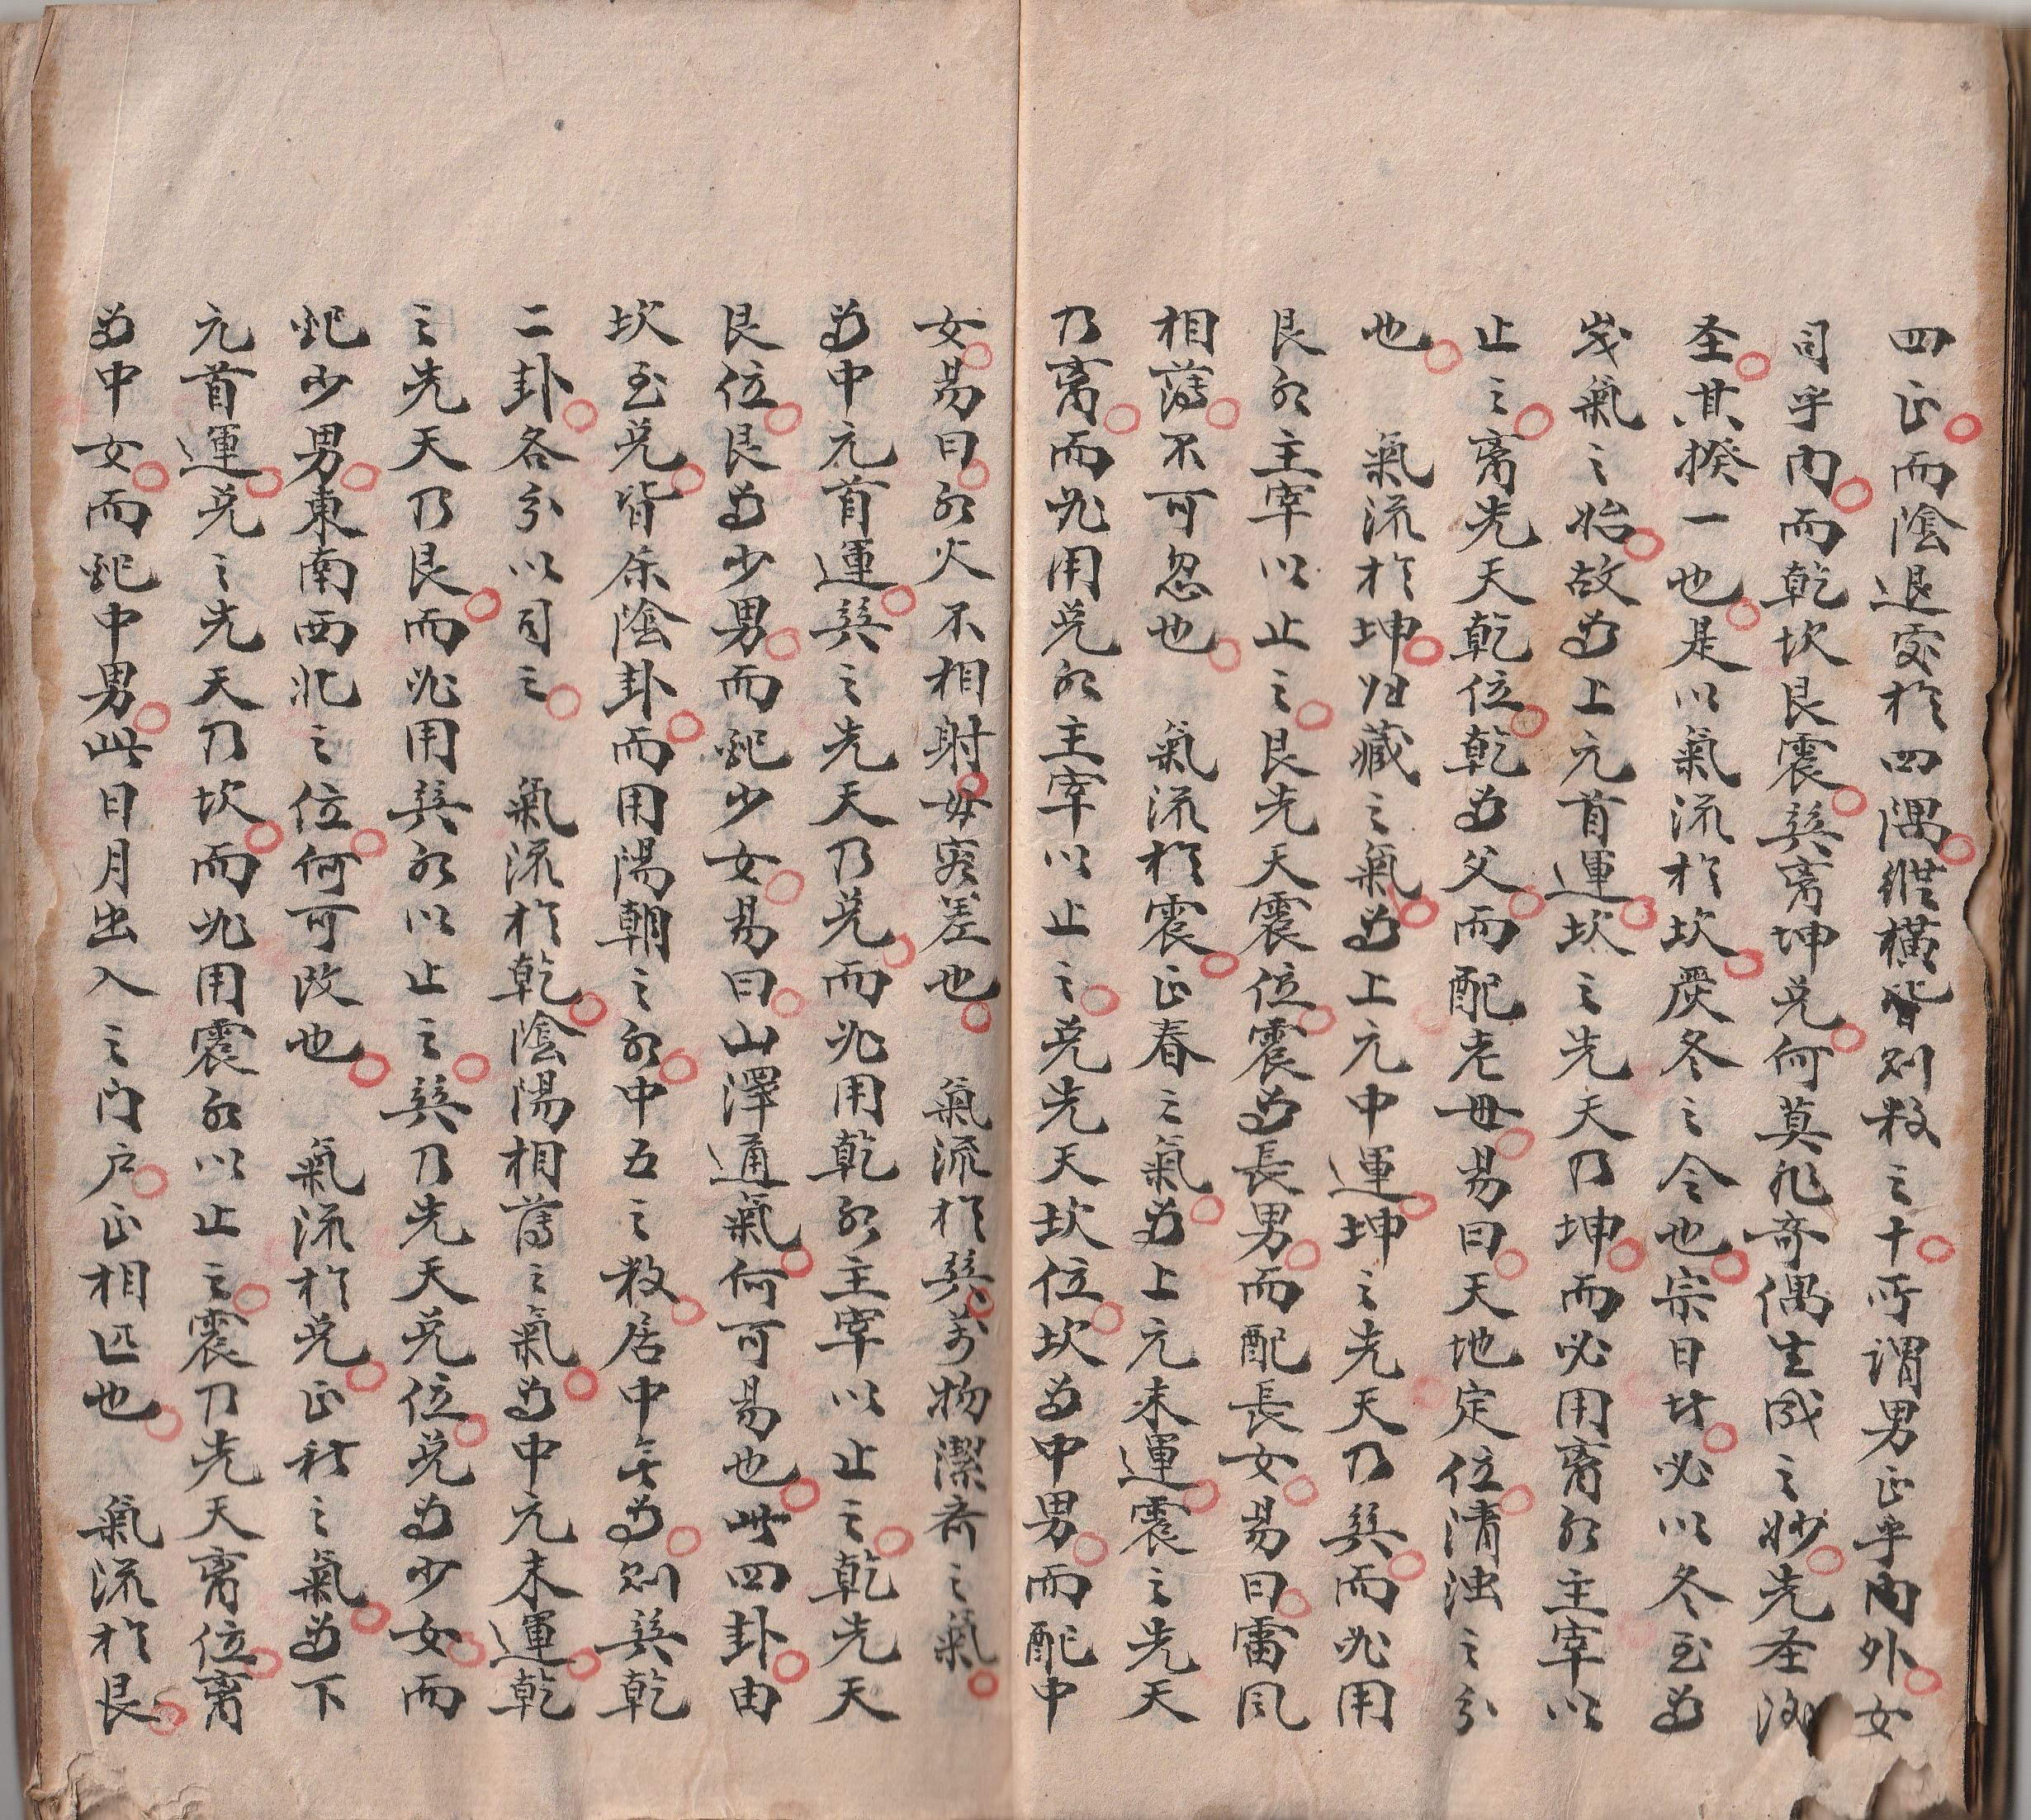 四正而陰退处於四隅縱橫皆则数之十所谓男正乎内外女
司乎内而乾坎艮震巽离坤兑何莫非奇偶生成之妙先圣後
圣其揆一也是以氣流於坎严冬之令也宗日坊必以冬至为
岁氣之始故为上元首運坎之先天乃坤而必用离水主宰以
止之离先天乾位乾为父而配老母易曰天地定位清浊之分
也　氣流於坤归藏之氣为上元中運坤之先天乃巽而必用
艮水主宰以止之艮先天震位震为長男而配長女易曰雷风
相薄不可忽也　氣流於震正春之氣为上元末運震之先天
乃离而必用兑水主宰以止之兑先天坎位坎为中男而配中
女易曰水火不相射毋容差也　氣流於巽万物潔齐之氣
为中元首運巽之先天乃兑而必用乾水主宰以止之乾先天
艮位艮为少男而配少女易曰山澤通氣何可易也此四卦由
坎至兑皆属陰卦而用陽朝之水中五之数居中无为则巽乾
二卦各分以司之　氣流於乾陰陽相薄之氣为中元末運乾
之先天乃艮而必用巽水以止之巽乃先天兑位兑为少女而
配少男東南西北之位何可改也　氣流於兑正秋之氣为下
元首運兑之先天乃坎而必用震水以止之震乃先天离位离
为中女而配中男此日月出入之门户正相匹也　氣流於艮